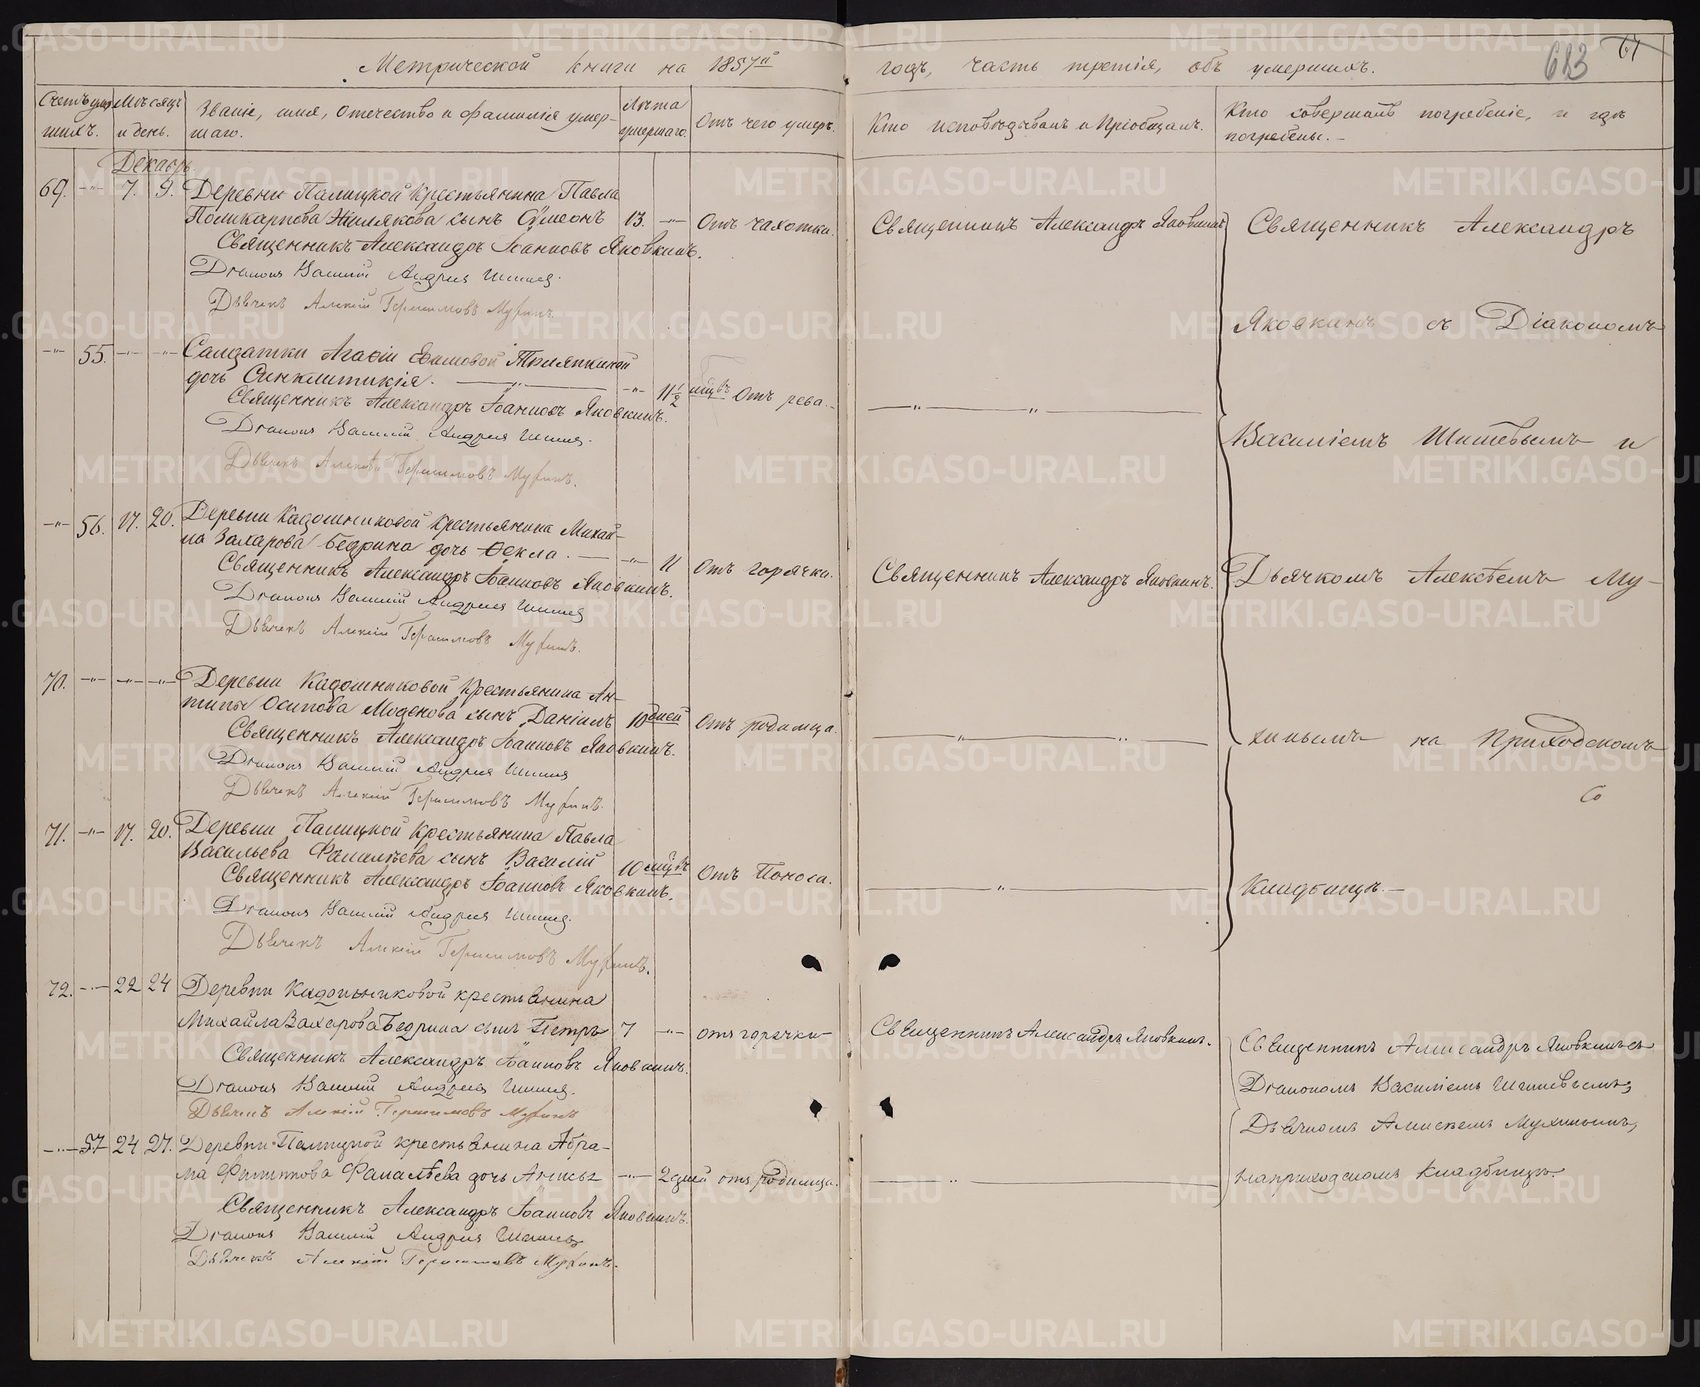 Метрической книги на 1857й
годъ, часть третія, объ умершихъ.
683
67
Счетъ умершихъ.
Мѣсяцъ и день.
Званіе, имя, отечество и фамилія умер-
шаго.
Лѣта умершаго.
Отъ чего умеръ.
Кто исповѣдывалъ и пріобщалъ.
Кто совершалъ погребеніе, и гдѣ
погребены.-
Декабрь.
69. -"- 7. 9. Деревни Палицкой крестьянина Павла
Поликарпова сынъ Сѵмеонъ 13 -"- Отъ чахотки.
Священникъ Александръ Яковкинъ
Священникъ Александръ
Священникъ Александръ Іоанновъ Яковкинъ.
Діаконъ Василій Андреев Шишев.
Дьячекъ Алексій Герасимовъ Мухинъ.
Яковкинъ съ Діакономъ
-"- 55. -"- -"- Салдатки Агаѳіи
дочь Синклитикія. -"- -"- 11 1/2 мцвъ Отъ рева.
Священникъ Александръ Іоанновъ Яковкинъ.
Діаконъ Василій Андреев Шишев.
Дьячекъ Алексій Герасимовъ Мухинъ.
Василіемъ Шишевымъ и
-"- 56. 17. 20. Деревни Кадошниковой крестьянина Михай-
ла Захарова Бедрина дочь Ѳекла. -"- 11 Отъ горячки.
Священникъ Александръ Яковкинъ.
Дьячкомъ Алексѣемъ Му-
Священникъ Александръ Іоанновъ Яковкинъ.
Діаконъ Василій Андреев Шишев
Дьячекъ Алексій Герасимовъ Мухинъ.
70. -"- -"- -"- Деревни Кадошниковой крестьянина Ан-
типы Осипова Моденова сынъ Даніилъ 10 дней Отъ родимца.
Священникъ Александръ Іоанновъ Яковкинъ.
Діаконъ Василій Андреев Шишев
Дьячекъ Алексій Герасимовъ Мухинъ.
хинымъ на Приходскомъ
71. -"- 17. 20. Деревни Палицкой крестьянина Павла
Васильева Фаналѣева сынъ Василій 10 мцвъ Отъ Поноса.
Священникъ Александръ Іоанновъ Яковкинъ.
Діаконъ Василій Андреев Шишев.
Дьячекъ Алексій Герасимовъ Мухинъ.
Кладбищѣ.-
72. -"- 22 24 Деревни Кадошниковой крестьянина
Михайла Захарова Бедрина сынъ Петръ 7 -"- отъ горячки
Священникъ Александръ Яковкинъ.
Священникъ Александръ Яковкинъ съ
Діакономъ Василіемъ Шишевымъ,
Дьячкомъ Алексѣемъ Мухинымъ,
на приходскомъ Кладбищѣ.
Священникъ Александръ Іоанновъ Яковкинъ.
Діаконъ Василій Андреев Шишев.
Дьячекъ Алексій Герасимовъ Мухинъ
-"- 57 24 27. Деревни Палицкой крестьянина Абра-
ма Филиппова Фаналѣева дочь Анисья -"- 2 дней отъ родимца.
Священникъ Александръ Іоанновъ Яковкинъ.
Діаконъ Василій Андреев Шишев
Дьячекъ Алексій Герасимовъ Мухинъ.
METRIKI.GASO-URAL.RU